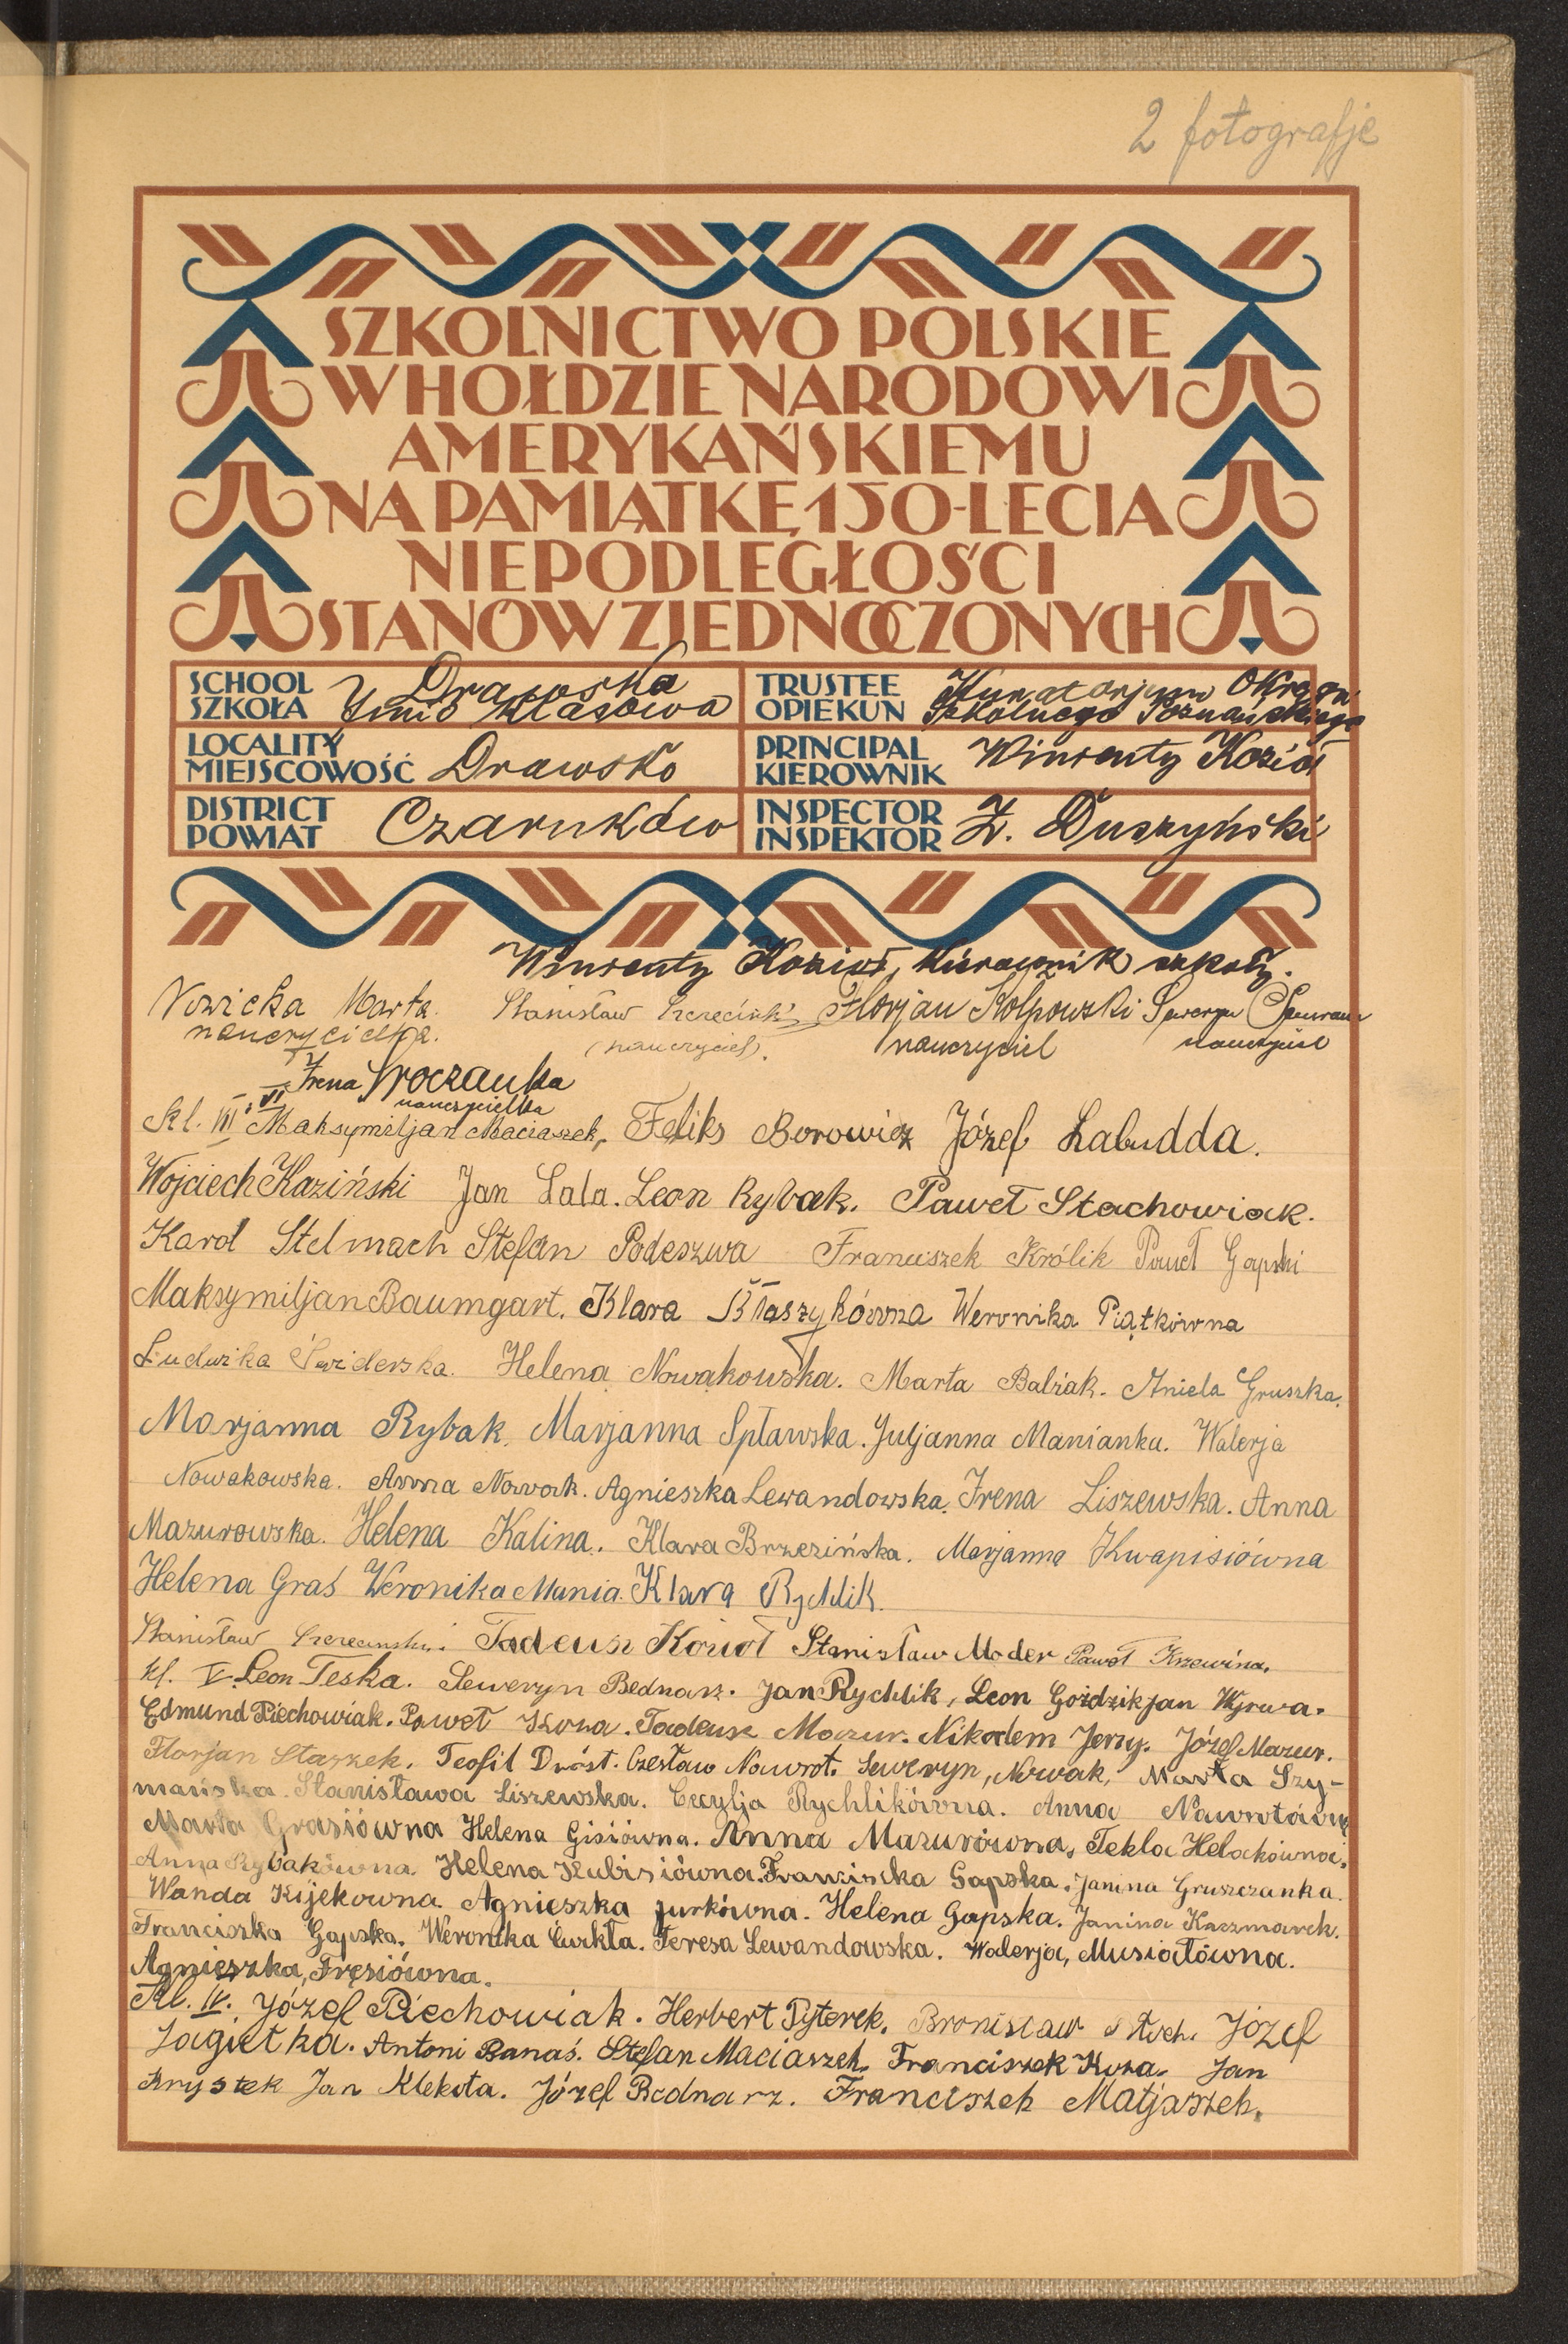 2 fotografje
SZKOLNICTWO POLSKIE
W HOŁDZIE NARODOWI
AMERYKAŃSKIEMU
NA PAMIĄTKĘ 150-LECIA
NIEPODLEGŁOŚCI
STANÓW ZJEDNOCZONYCH
SCHOOL SZKOŁA Drawska klasowa
TRUSTEE OPIEKUN Kuratorjum Okręgu Szkolnego Poznańskiego
LOCALITY MIEJSCOWOŚĆ Drawsko
PRINCIPAL KIEROWNIK Wincenty Kozioł
DISTRICT POWIAT Czarnków
INSPECTOR INSPEKTOR Z. Duszyński
Wincenty Kozioł, kierownik szkoły.
Nowicka Marta. Stanisław Szczeciński Florjan Kolpowski Seweryn
nauczycielka. (nauczyciel). nauczyciel nauczyciel
Irena Sroczanka
nauczycielka
Kl. VII i VI Maksymiljan Maciaszek, Feliks Borowicz Józef Labudda.
Wojciech Kaziński Jan Lala. Leon Rybak. Paweł Stachowiak.
Karol Stelmach Stefan Podeszwa Franciszek Królik Paweł Gapski
Maksymiljan Baumgart. Klara Błaszykówna Weronika Piątkówna
Ludwika Świderska. Helena Nowakowska. Marta Balzak. Aniela Gruszka.
Marjanna Rybak. Marjanna Spławska. Juljanna Manianka. Walerja
Nowakowska. Anna Nowak. Agnieszka Lewandowska. Irena Liszewska. Anna
Mazurowska. Helena Kalina. Klara Brzezińska. Marjanna Kwapisiówna
Helena Graś Weronika Mania. Klara Rychlik.
Stanisław Szczeciński. Tadeusz Kozioł Stanisław Moder Paweł Krzewina.
kl. V Leon Teska. Seweryn Bednarz. Jan Rychlik, Leon Goździk Jan Wyrwa.
Edmund Piechowiak. Paweł Koza. Tadeusz Mazur. Nikodem Jerzy. Józef Mazur.
Florjan Staszek. Teofil Dróst. Czesław Nawrot. Seweryn, Nowak, Marta Szy-
mańska. Stanisława Liszewska. Cecylja Rychlikówna. Anna Nawrotówna
Marta Grasiówna Helena Gisiówna. Anna Mazurówna, Tekla Helakówna.
Anna Rybakówna. Helena Kubisiówna. Franciszka Gapska. Janina Gruszczanka.
Wanda Kijekowna. Agnieszka Jurkówna. Helena Gapska. Janina Kaczmarek.
Franciszka Gapska. Weronika Ćwikła. Teresa Lewandowska. Walerja, Musiałówna.
Agnieszka, Fręsiówna.
Kl. IV. Józef Piechowiak. Herbert Pyterek. Bronisław Józef
Jagiełka. Antoni Banaś. Stefan Maciaszek. Franciszek Koza. Jan
Krystek Jan Klekota. Józef Bednarz. Franciszek Matjaszek.